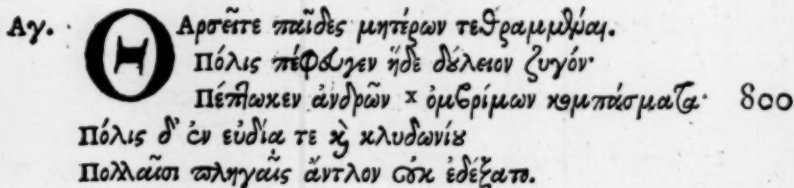 Αγ. ΘΑρσεῖτε παῖδες μητέρων τεθραμμέναι.
Πόλις πέφευγεν ἥδε δούλειον ζυγόν·
Πέπτωκεν ἀνδρῶν ˣ ὀμβρίμων κομπάσματα· 800
Πόλις δ' ἐν εὐδία τε καὶ κλυδωνίου
Πολλαῖσι πληγαῖς ἄντλον οὐκ ἐδέξατο.